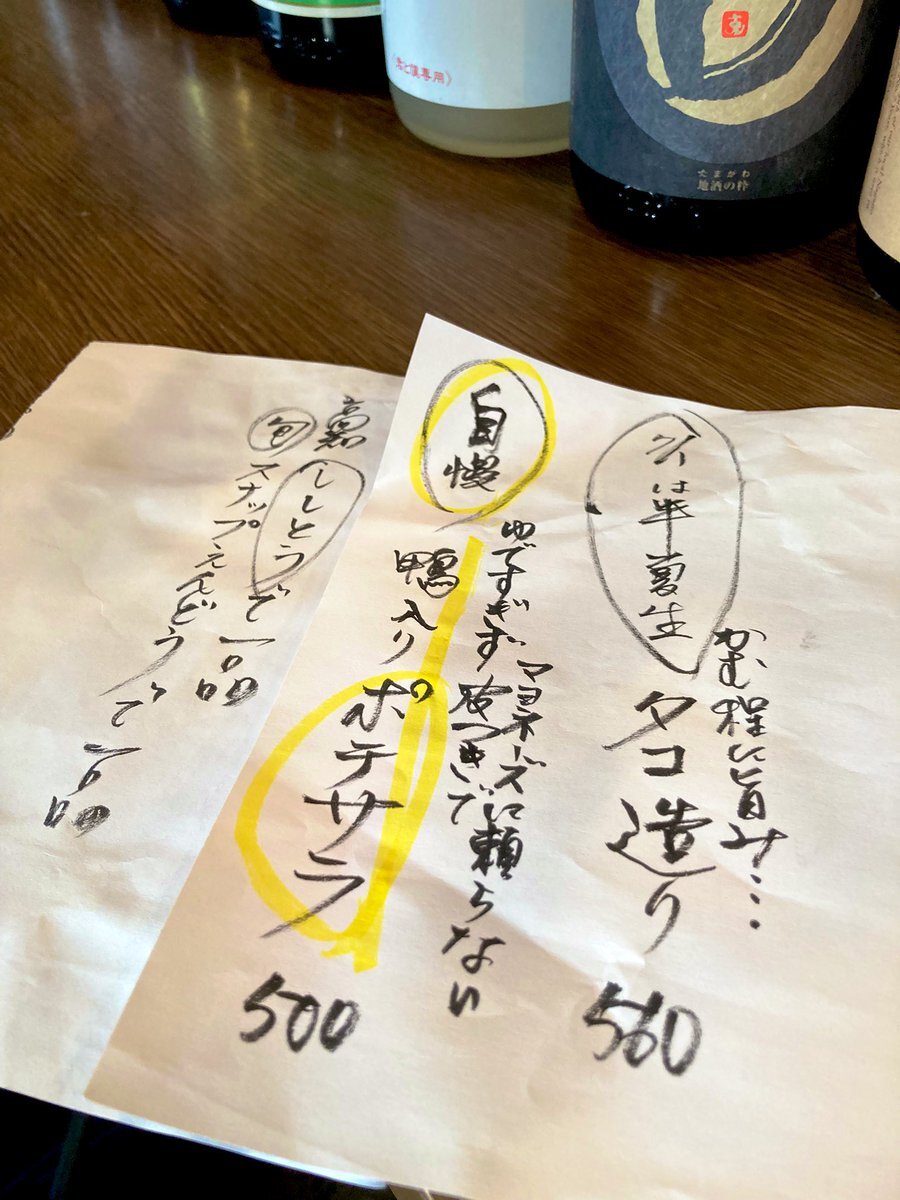 かむ程に旨み…
は半夏生
タコ造り
560
自慢
ゆですぎず
マヨネーズに頼らない
皮つきで
鴨入り
ポテサラ
500
高知
ししとうで一品
旬
スナップえんどうで一品
たまがわ
地酒の粋
専用》